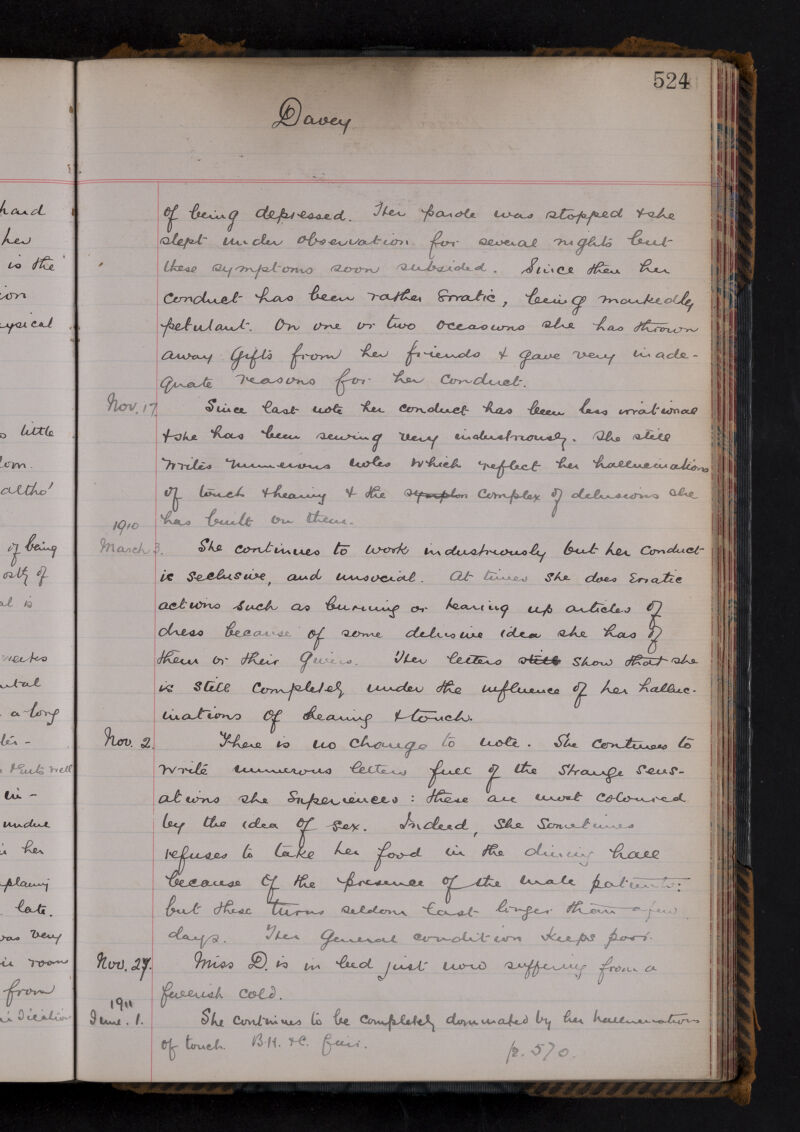 524
Davey
hard
her
is the
ion
ysical
little
altho'
of being
al is
a long
undue
her
late.
was very
room
from
of being depressed. Her parole was stopped & she
slept under observation for several nights but
these symptoms soon subsided. Since then her
conduct has been rather erratic, being markedly
petulant. On one or two occasions she has thrown
away gifts from her friends & gave very inade-
quate reasons for her conduct.
Nov. 17 Since last note her conduct has been less irrational
& she has been sewing very industriously. She still
writes numerous notes which reflect her hallucinations
of touch & hearing & the complex of delusions she
has built on them.
1910
March 3. She continues to work industriously but her conduct
is seclusive, and unsocial. At times she does erratic
actions such as burning or tearing up articles of
dress because of some delusive idea she has of
them or their givers. Her letters still show that she
is still completely under the influence of her halluc-
inations of hearing & touch.
Nov. 2. There is no change to note. She continues to
write numerous letters full of the strange sens-
ations she experiences: these are most coloured
by the idea of sex. Indeed, she sometimes
refuses to take her food in the dining hall
because of the presence of the male patients:
but these turns seldom last longer than a few
days. Her general condition keeps poor.
Nov. 27. Miss D. is in bed just now suffering from a
feverish cold.
1911
June. 1. She continues to be completely dominated by her hallucinations
of touch. B.H. & C. fair. p. 570.